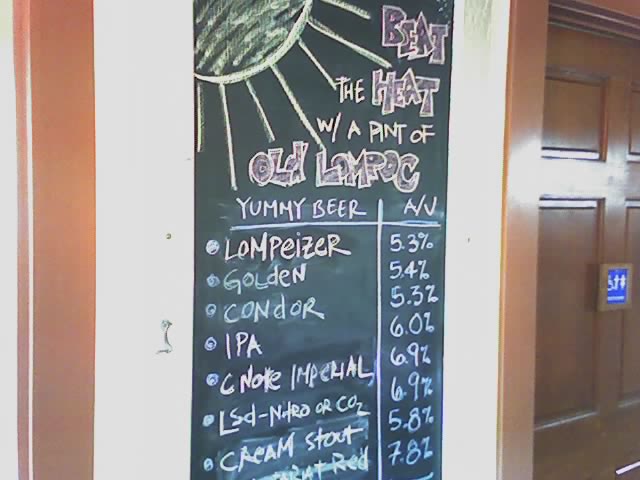 BEAT
THE HEAT
W/ A PINT OF
OLD LOMPOC
YUMMY BEER A/V
LOMPEIZER 5.3%
GOLDEN 5.4%
CONDOR 5.3%
IPA 6.0%
C NOTE IMPERIAL 6.9%
LSD-NITRO OR CO2 6.9%
CREAM STOUT 5.8%
Red 7.8%